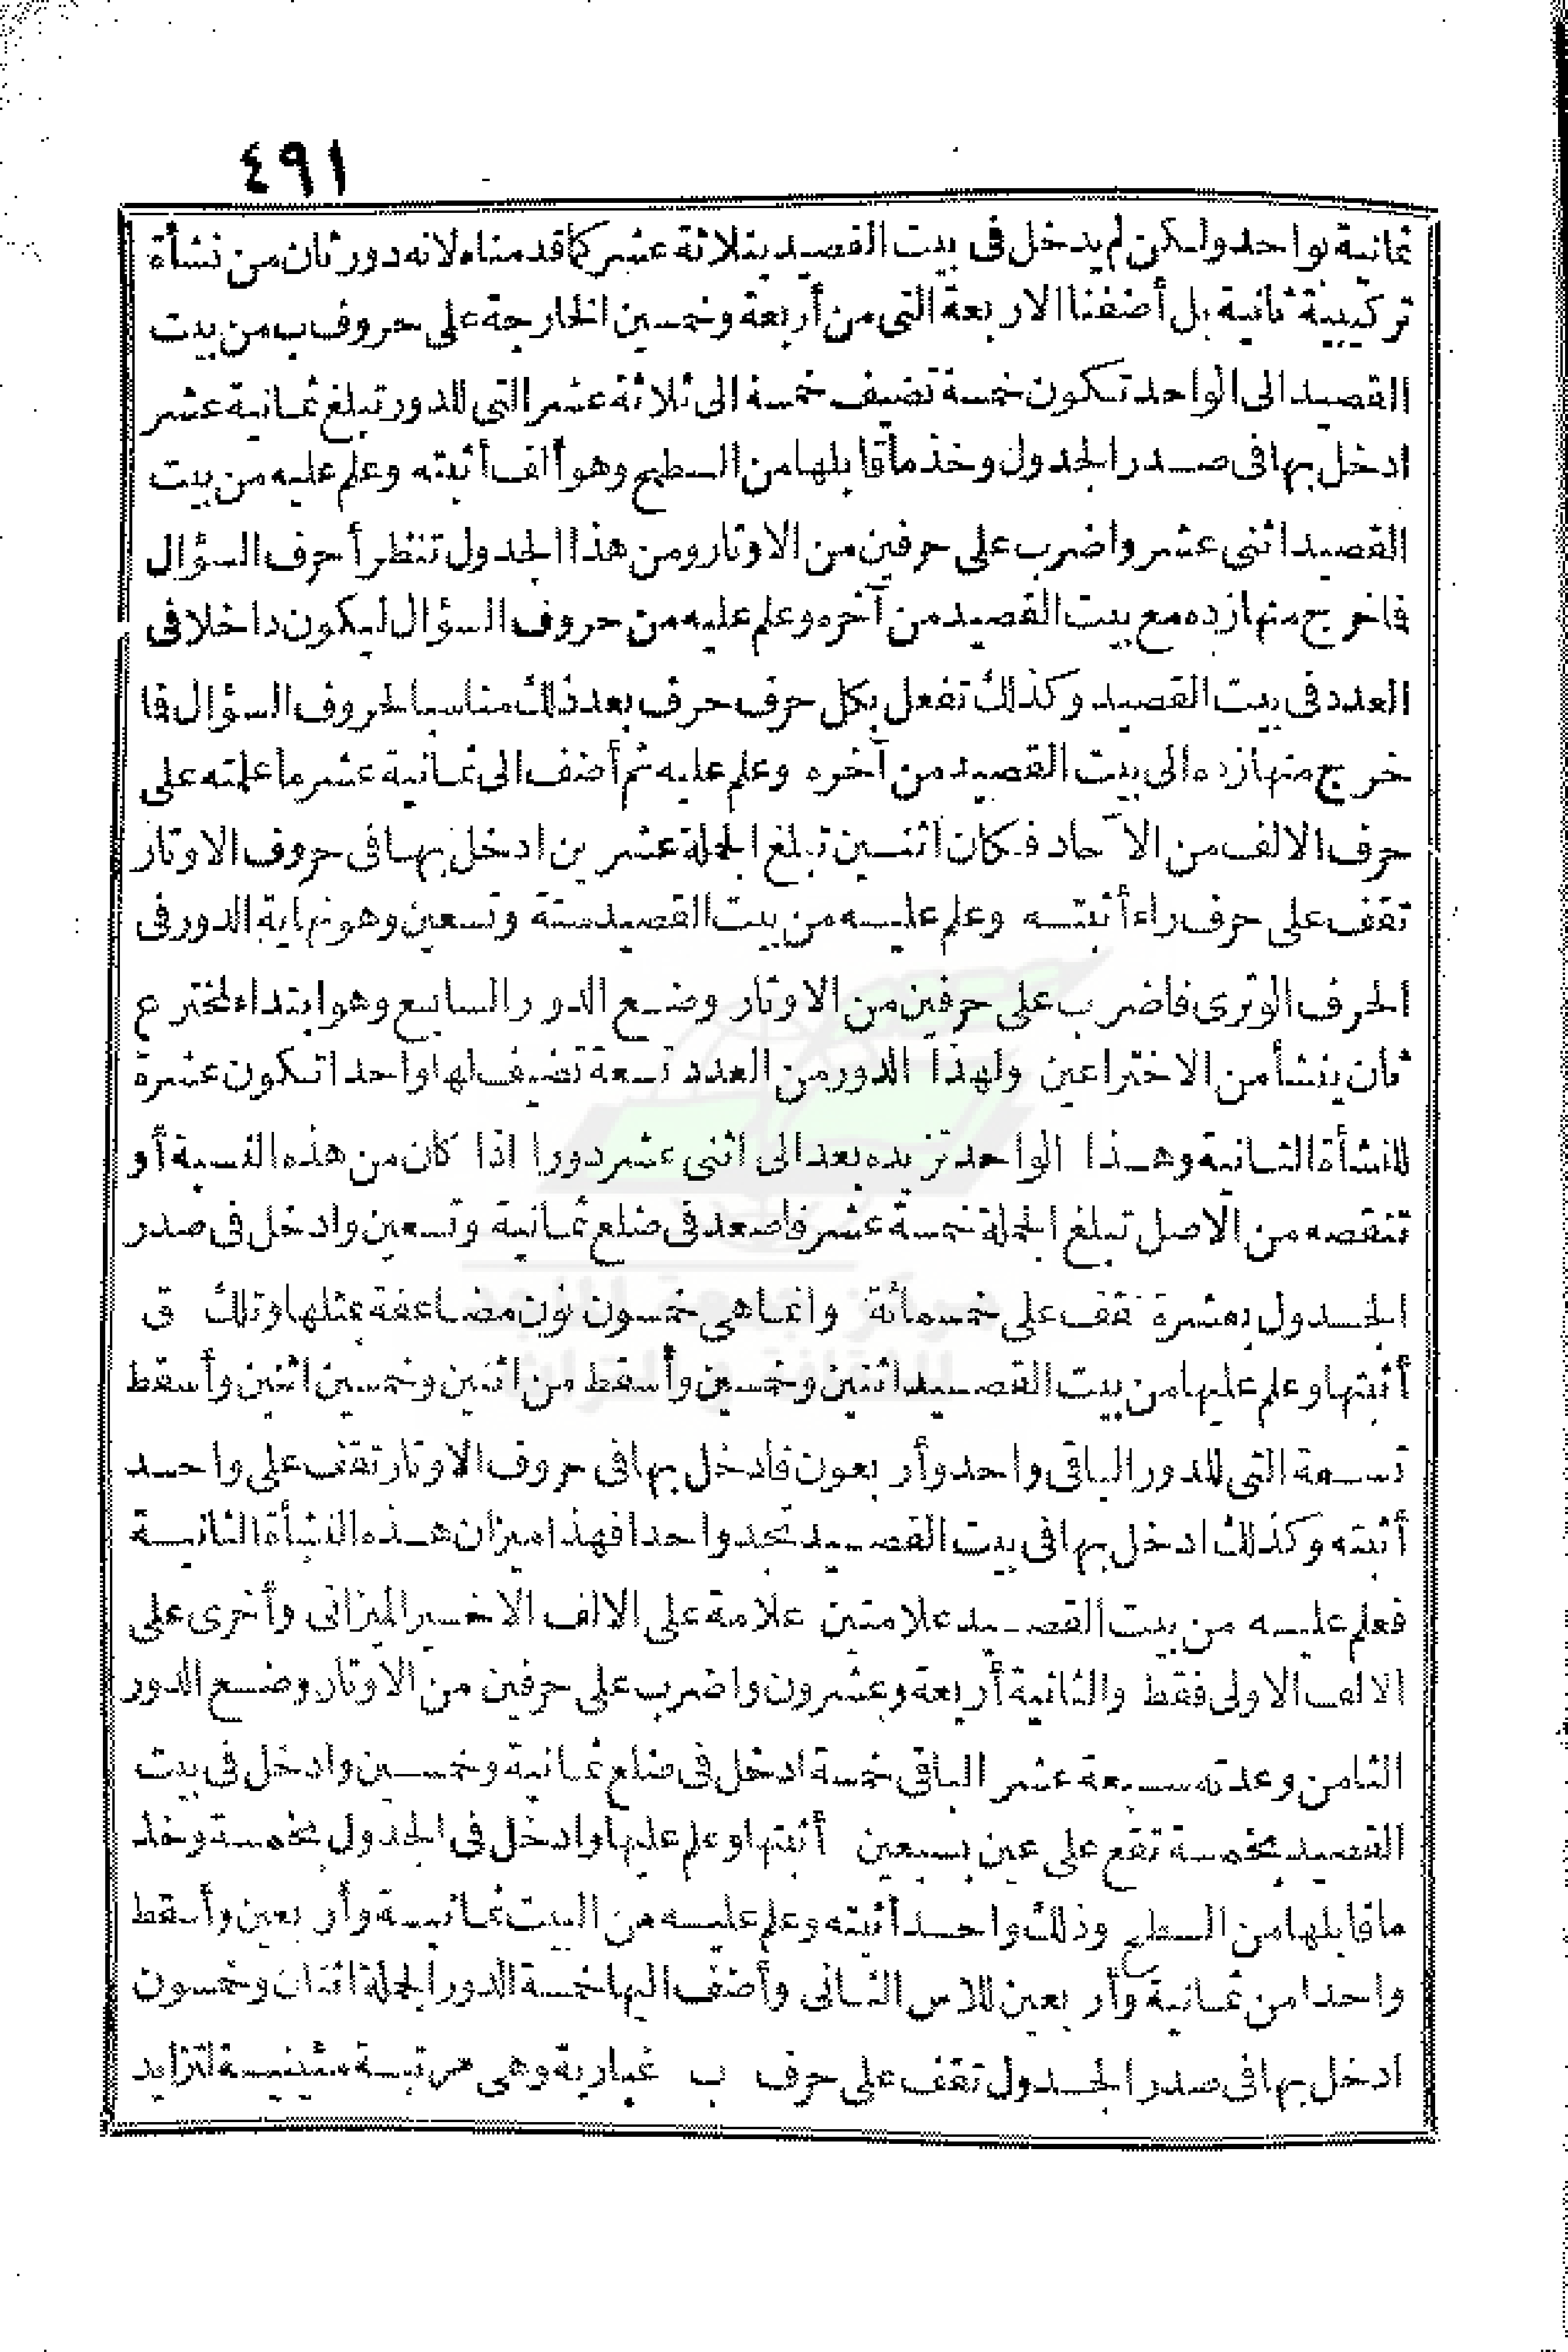 ٤٩١
ثمانية بواحد ولكن لم يدخل فى بيت القصيد بثلاثة عشر كما قدمناه لانه دور ثان من نشأة
تركيبية ثانية بل أضفنا الاربعة التى من أربعة وخمسين الخارجة على حروف ب من بيت
القصيد الى الواحد تكون خمسة تضيف خمسة الى ثلاثة عشر التى للدور تبلغ ثمانية عشر
ادخل بها فى صدر الجدول وخذ ما قابلها من السطح وهو ألف أثبته وعلم عليه من بيت
القصيد اثنى عشر واضرب على حرفين من الاوتار ومن هذا الجدول تنظر أحرف السؤال
فما خرج منها زده مع بيت القصيد من آخره وعلم عليه من حروف السؤال ليكون داخلا فى
العدد فى بيت القصيد وكذلك تفعل بكل حرف حرف بعد ذلك مناسبا لحروف السؤال فما
خرج منها زده الى بيت القصيد من آخره وعلم عليه ثم أضف الى ثمانية عشر ما علمته على
حرف الالف من الآحاد فكان اثنين تبلغ الجملة عشرين ادخل بها فى حروف الاوتار
تقف على حرف راء أثبته وعلم عليه من بيت القصيد ستة وتسعين وهو نهاية الدور فى
الحرف الوترى فاضرب على حرفين من الاوتار وضع الدور السابع وهو ابتداء لمخترع
ثان ينشأ من الاختراعين ولهذا الدور من العدد تسعة تضيف لها واحدا تكون عشرة
للنشأة الثانية وهذا الواحد تزيده بعد الى اثنى عشر دورا اذا كان من هذه النسبة أو
تنقصه من الاصل تبلغ الجملة خمسة عشر فاصعد فى ضلع ثمانية وتسعين وادخل فى صدر
الجدول بعشرة تقف على خمسمائة وانما هى خمسون نون مضاعفة بمثلها وتلك ق
أثبتها وعلم عليها من بيت القصيد اثنين وخمسين وأسقط من اثنين وخمسين اثنين وأسقط
تسعة التى للدور الباقى واحد وأربعون فادخل بها فى حروف الاوتار تقف على واحد
أثبته وكذلك ادخل بها فى بيت القصيد تجد واحدا فهذا ميزان هذه النشأة الثانية
فعلم عليه من بيت القصيد علامتين علامة على الالف الاخير الميزانى وأخرى على
الالف الاولى فقط والثانية أربعة وعشرون واضرب على حرفين من الاوتار وضع الدور
الثامن وعدته سبعة عشر الباقى خمسة ادخل فى ضلع ثمانية وخمسين وادخل فى بيت
القصيد بخمسة تقع على عين بسبعين أثبتها وعلم عليها وادخل فى الجدول بخمسة وخذ
ما قابلها من السطح وذلك واحد أثبته وعلم عليه من البيت ثمانية وأربعين وأسقط
واحدا من ثمانية وأربعين للاس الثانى وأضف اليها خمسة الدور الجملة اثنان وخمسون
ادخل بها فى صدر الجدول تقف على حرف ب غبارية وهى مرتبة مئينية لتزايد